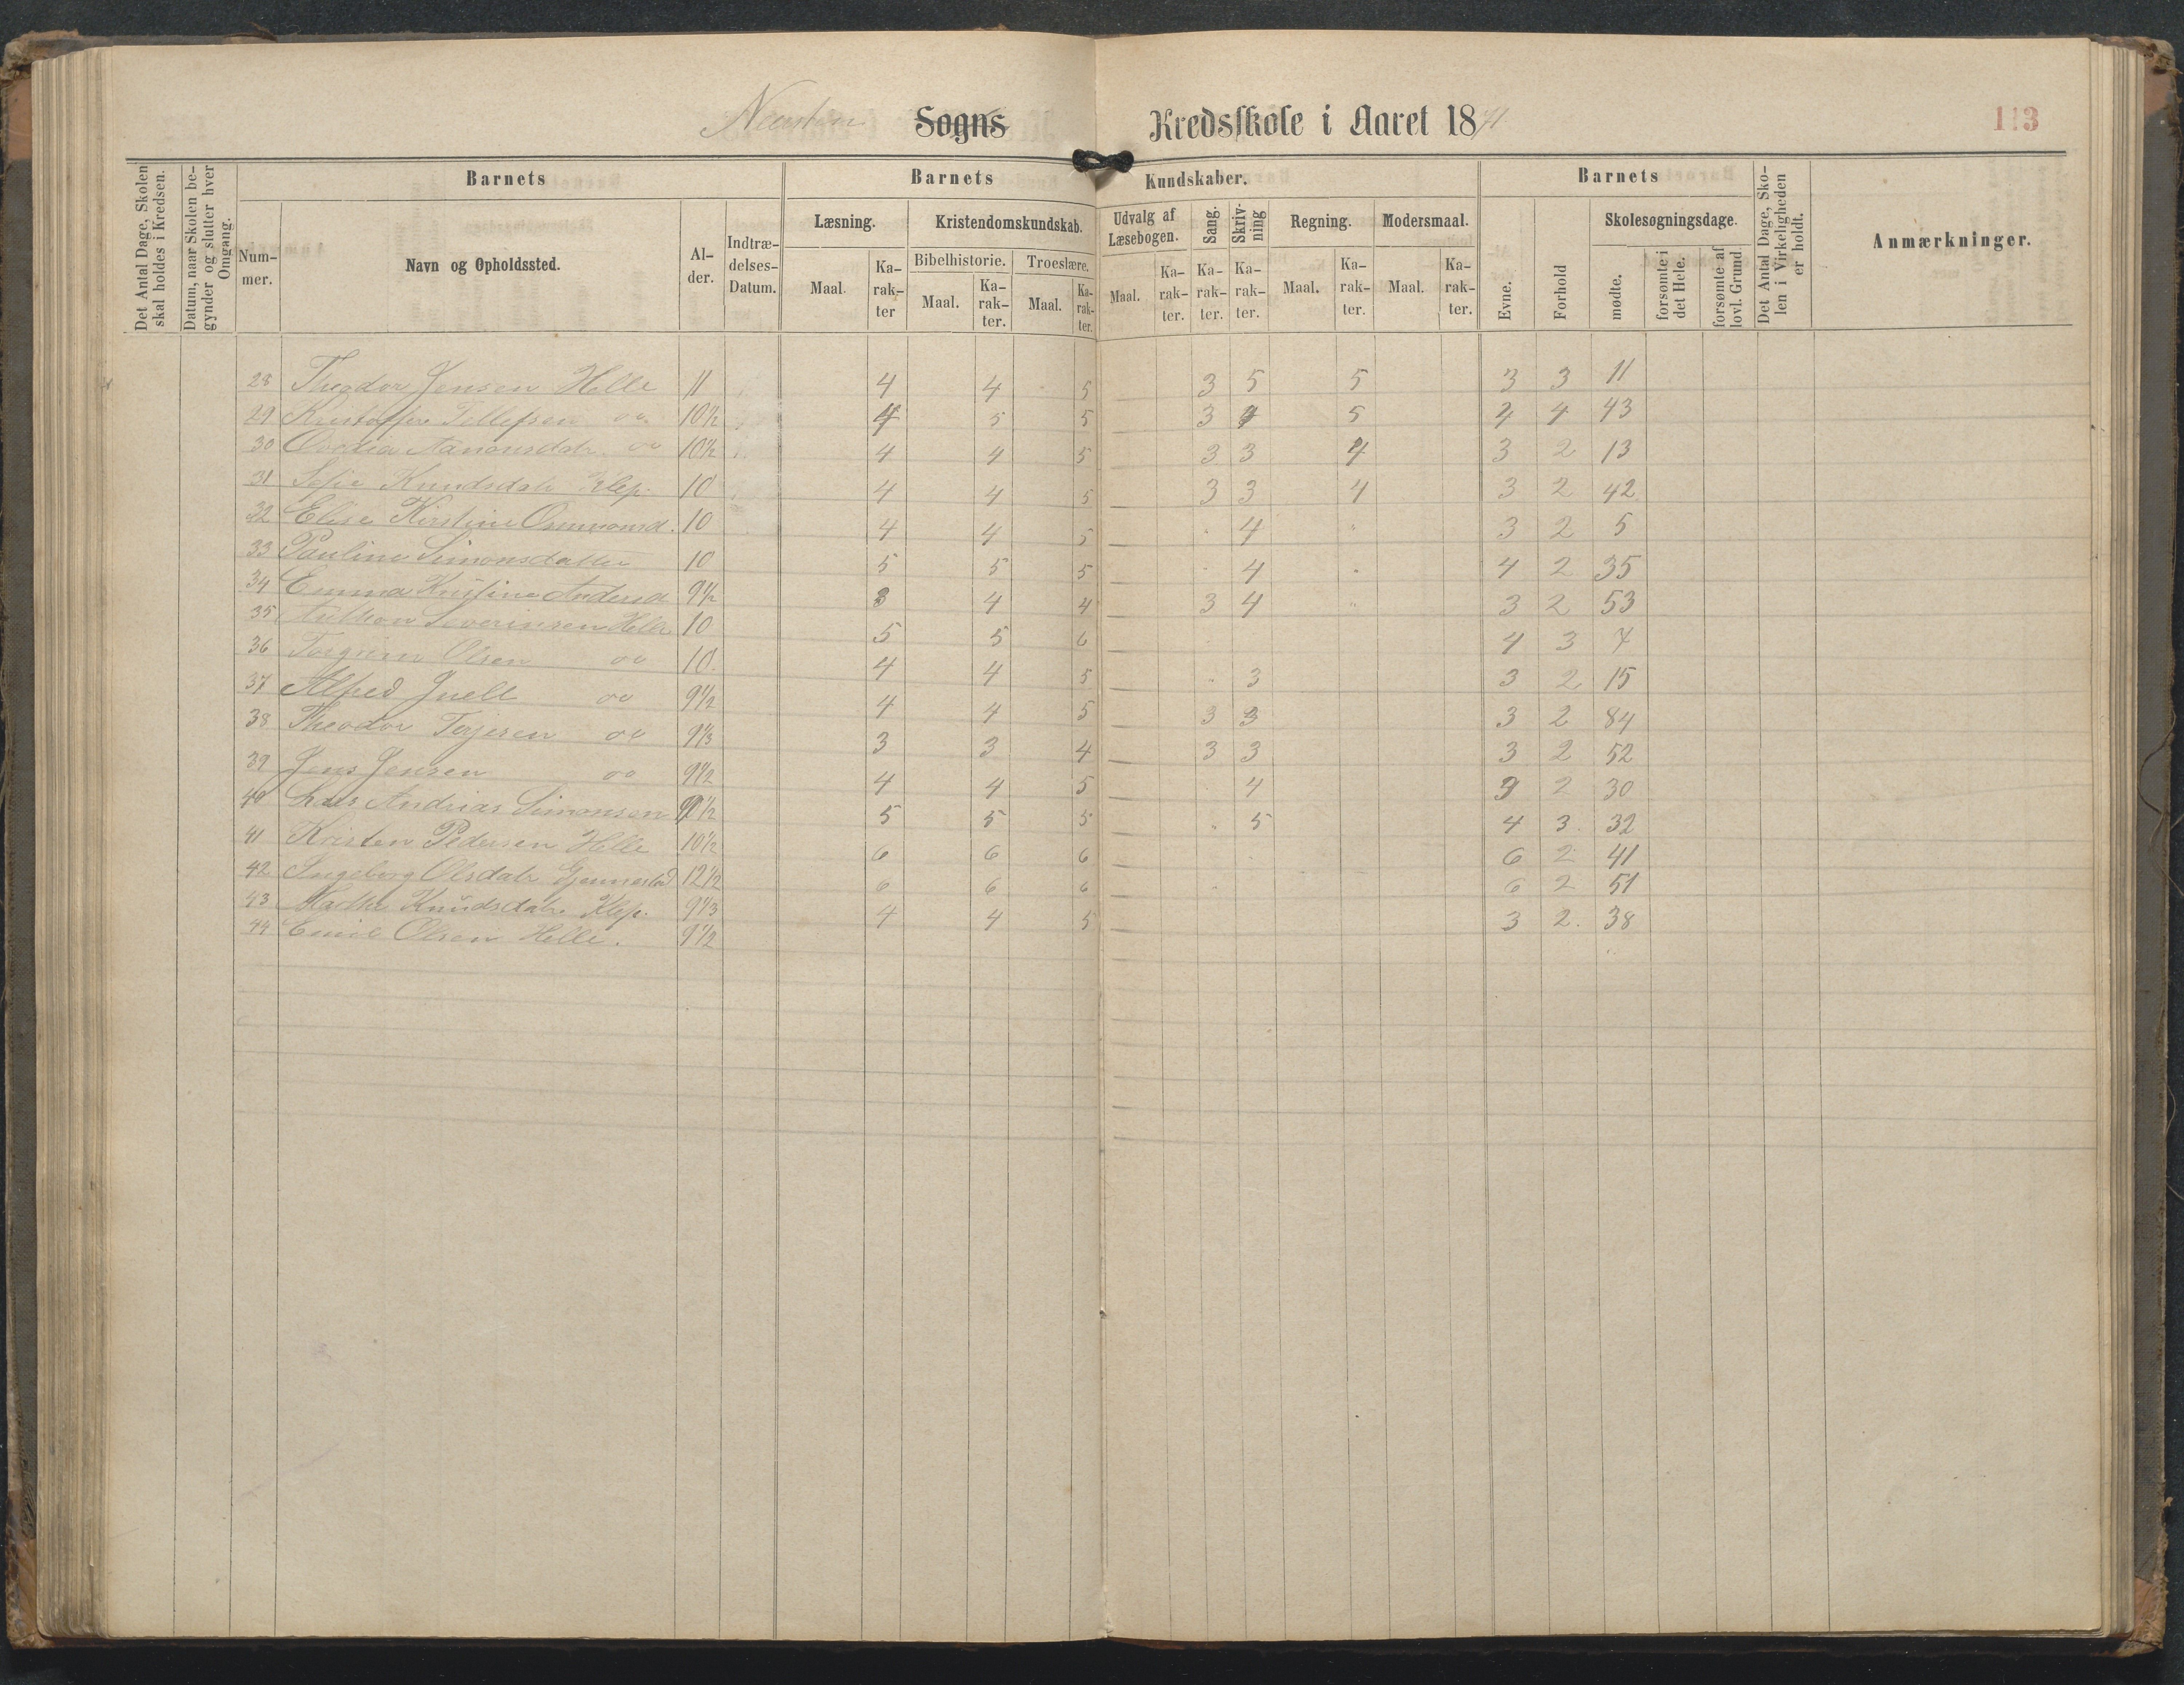 Sogns Kredsskole i Aaret 1871
113
Det Antal Dage, Skolen skal holdes i Kredsen.
Datum, naar Skolen begynder og slutter hver Omgang.
Barnets
Nummer.
Navn og Opholdssted.
Alder.
Indtrædelses-Datum.
Barnets Kundskaber.
Læsning.
Maal. Karakter
Kristendomskundskab.
Bibelhistorie.
Maal. Karakter.
Troeslære.
Maal. Karakter.
Udvalg af Læsebogen.
Maal. Karakter.
Sang.
Karakter.
Skrivning
Karakter.
Regning.
Maal. Karakter.
Modersmaal.
Maal. Karakter.
Barnets
Evne.
Forhold
Skolesøgningsdage.
mødte.
forsømte i det Hele.
forsømte af lovl. Grund
Det Antal Dage, Skolen i Virkeligheden er holdt.
Anmærkninger.
28 Theodor Jensen Helle 11 4 4 5 3 5 5 3 3 11
29 Tellefsen do 10½ 4 5 5 3 4 5 4 4 43
30 do 10½ 4 4 5 3 3 4 3 2 13
31 Sofie Knudsdatr Klep. 10 4 4 5 3 3 4 3 2 42
32 Elise Kirstine 10 4 4 5 4 " 3 2 5
33 Pauline Simonsdatter 10 5 5 5 4 4 2 35
34 Emma Kristine Andersd 9½ 3 4 4 3 4 " 3 2 53
35 Severinsen Helle 10 5 5 6 4 3 7
36 Torgrim Olsen do 10. 4 4 5 3 3 2 15
37 Alfred Juell do 9½ 4 4 5 3 3 3 2 84
38 Theodor Terjesen do 9⅓ 3 3 4 3 3 3 2 52
39 Jens Jensen do 9½ 4 4 5 4 3 2 30
40 Lars Andreas Simonsen 5 5 5 5 4 3 32
41 Kristen Pedersen Helle 10½ 6 6 6 6 2 41
42 Ingeborg Olsdatr 12½ 6 6 6 6 2 51
43 Knudsdatr Klep. 9⅓ 4 4 5 3 2. 38
44 Emil Olsen Helle. 9½